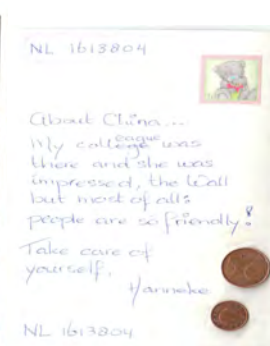 NL 1613804
About China...
My colleague was
there and she was
impressed, the Wall
but most of all:
people are so friendly!
Take care of
yourself,
Hanneke
NL 1613804